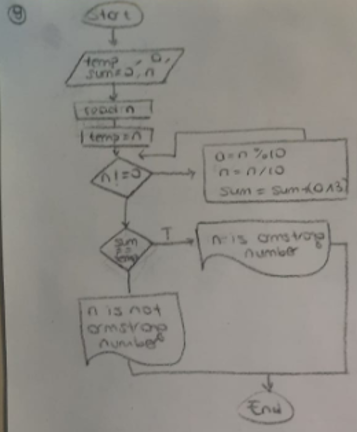 9
Start
temp, a,
sum=0, n
read n
temp=n
n!=0
a=n%10
n=n/10
sum = sum+(a^3)
sum
==
temp
T
n is armstrong
number
n is not
armstrong
number
End